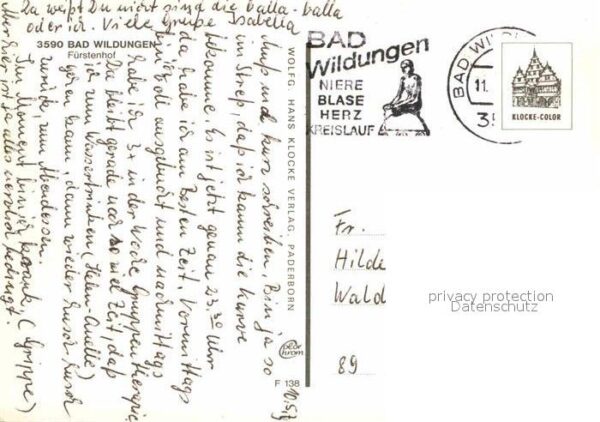 Da weißt Du nicht sind die balla-balla
oder ich. Viele Grüße Isabella
3590 BAD WILDUNGEN
Fürstenhof
10.5.
Muß mich kurz schreiben, Bin ja so
im Streß, daß ich kaum die Kurve
bekomme. Es ist jetzt genau 23.30 Uhr
da habe ich am besten Zeit. Vormittags
bin ich voll ausgebucht und nachmittags
habe ich 3x in der Woche Gruppentherapie
Da bleibt gerade noch so viel Zeit, daß
ich zum Wassertrinken (Helen-Quelle)
gehen kann, dann wieder husch husch
zurück, zum Abendessen.
Im Moment bin ich krank, (Grippe)
Aber hier ist ja alles nervlich bedingt.
WOLFG. HANS KLOCKE VERLAG, PADERBORN
color chrom
F 138
BAD
Wildungen
NIERE
BLASE
HERZ
KREISLAUF
BAD WI
11.
35
KLOCKE-COLOR
Fr.
Hilde
Wald
89
privacy protection
Datenschutz